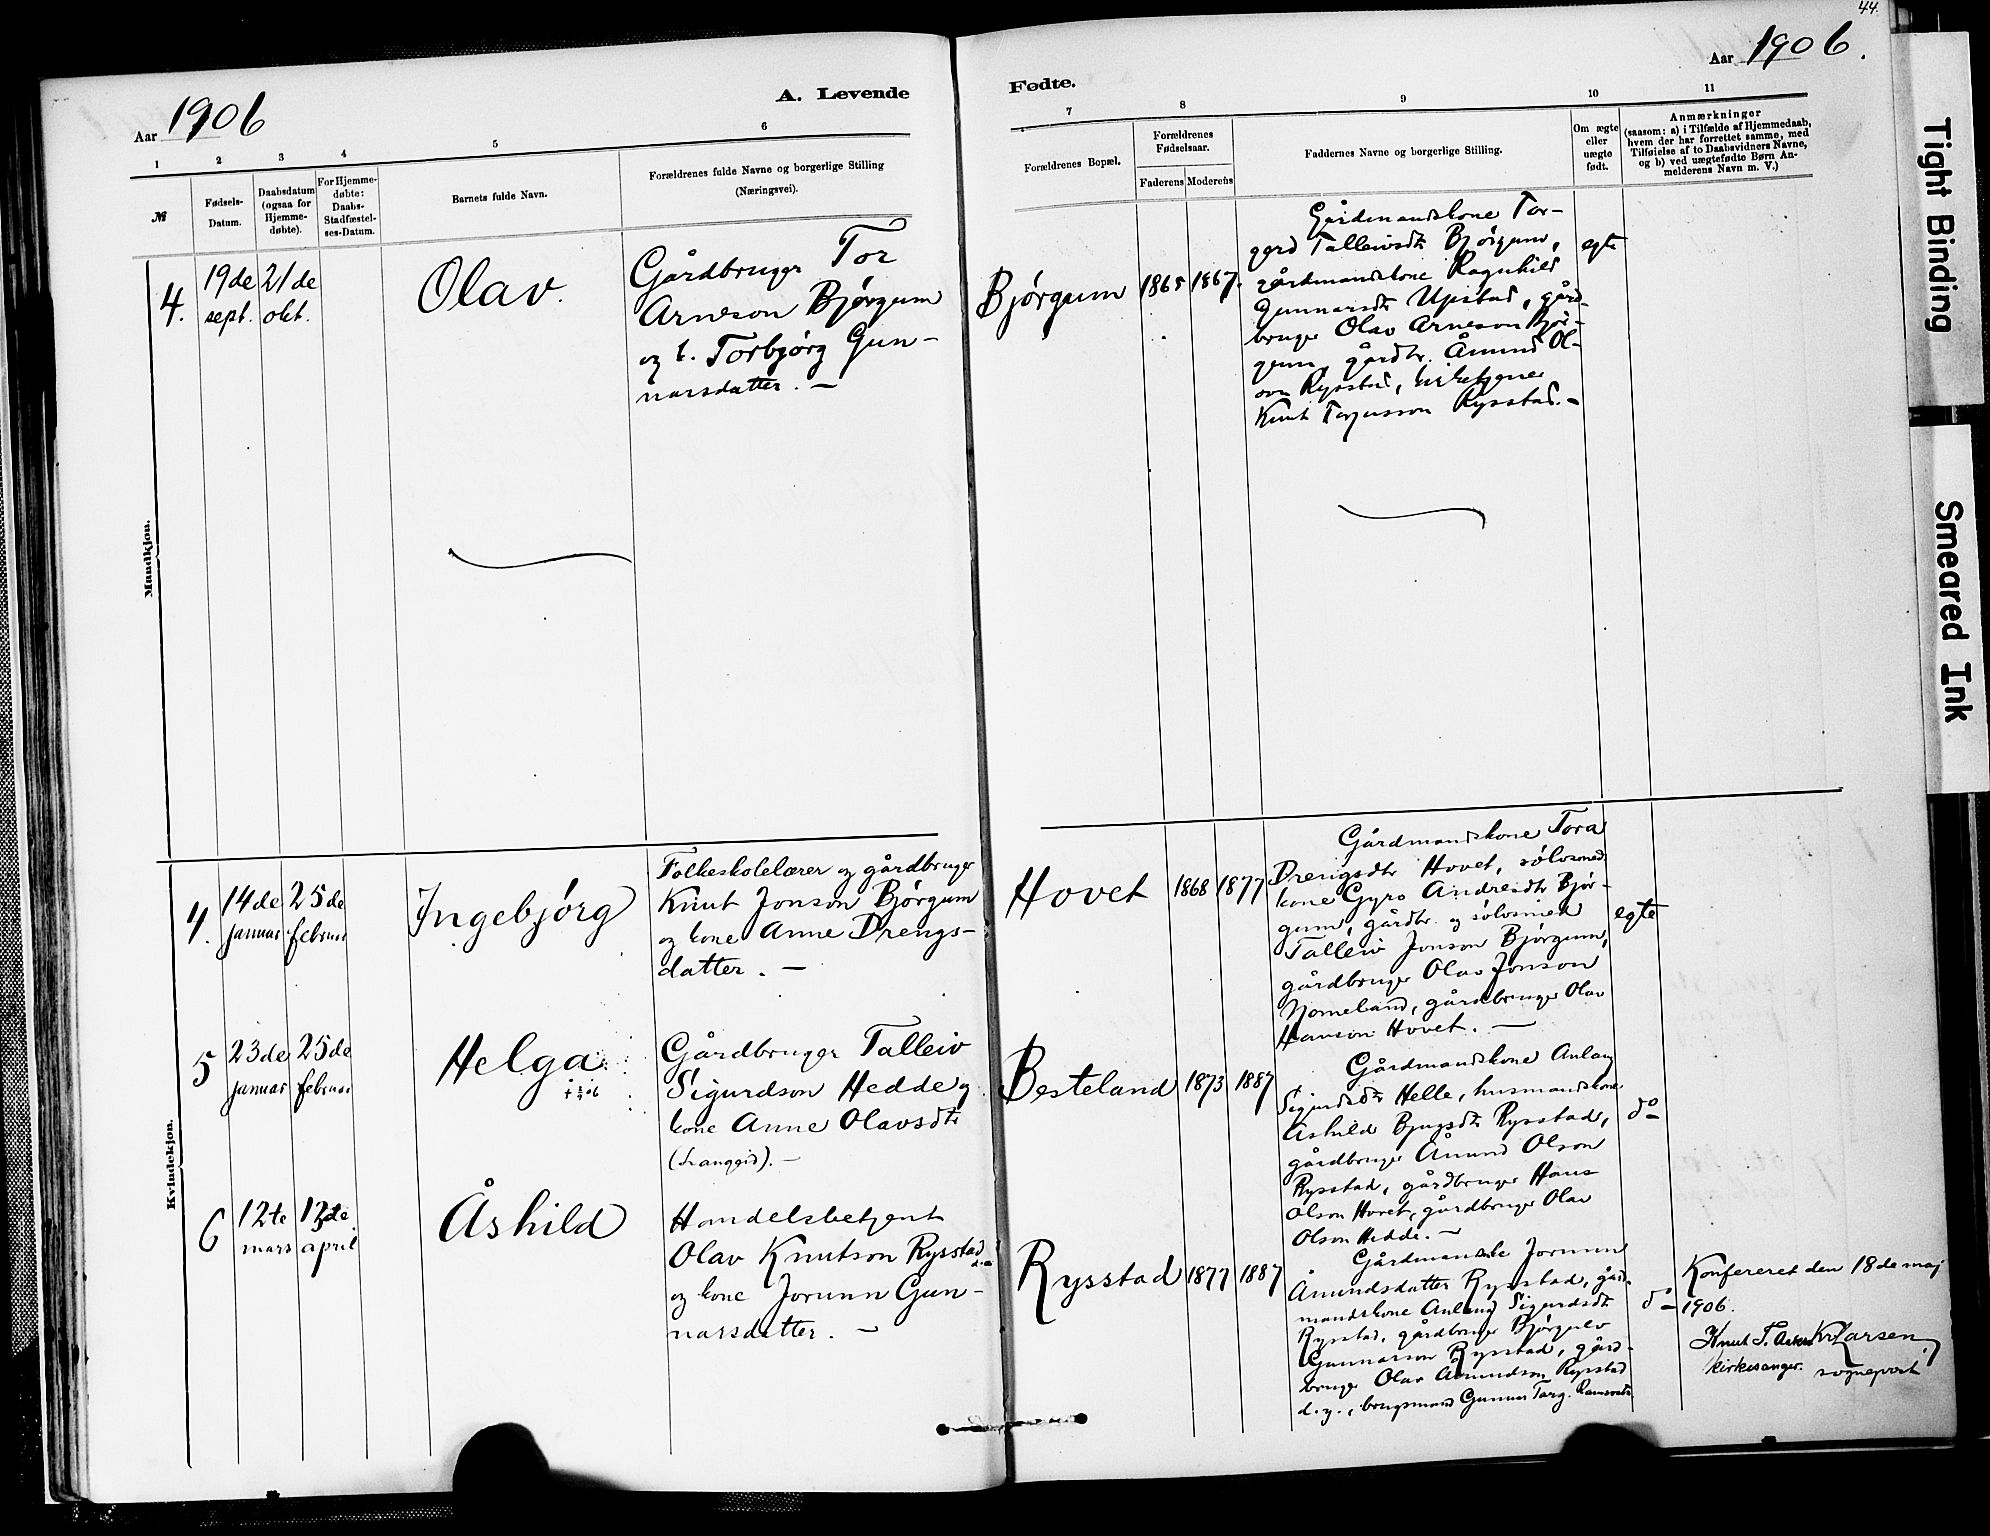 44.
Aar 1906
A. Levende
Fødte.
Aar 1906.
1 2 3 4 5 6 7 8 9 10 11
№
Fødsels-
Datum.
Daabsdatum
(ogsaa for
Hjemme-
døbte).
For Hjemme-
døbte:
Daabs-
Stadfæstel-
ses-Datum.
Barnets fulde Navn.
Forældrenes fulde Navne og borgerlige Stilling
(Næringsvei).
Forældrenes Bopæl.
Forældrenes
Fødselsaar.
Faderens Moderens
Faddernes Navne og borgerlige Stilling.
Om ægte
eller
uægte
født.
Anmærkninger
(saasom: a) i Tilfælde af Hjemmedaab,
hvem der har forrettet samme, med
Tilføielse af to Daabsvidners Navne,
og b) ved uægtefødte Børn An-
melderens Navn m. V.)
Mandkjøn.
4.
19de
sept.
21de
okt.
Olav.
Gårdbruger Tor
Arneson Bjørgum
og k. Torbjørg Gun-
narsdatter. —
Bjørgum
1865
1867.
Gårdmandskone Tor-
gerd Talleivsdtr Bjørgum,
gårdmandskone Ragnhild
Gunnarsdtr Upstad, gård-
bruger Olav Arneson Bjør-
gum, gårdbr. Åmund Ol-
son Rysstad, kirketjener
Knut Torjusson Rysstad. -
egte
Kvindekjøn.
4.
14de
januar
25de
februar
Ingebjørg
Folkeskolelærer og gårdbruger
Knut Jonson Bjørgum
og kone Anne Drengs-
datter. —
Hovet
1868
1877
Gårdmandskone Tora
Drengsdtr Hovet, sølvsmed
kone Gyro Andreasdtr Bjør-
gum, gårdbr. og sølvsmed
Talleiv Jonson Bjørgum,
gårdbruger Olav Jonson
Nomeland, gårdbruger Olav
Hanson Hovet. —
egte
5
23de
januar
25de
februar
Helga
Gårdbruger Talleiv
Sigurdson Hedde og
kone Anne Olavsdtr
Besteland
1873
1887
Gårdmandskone Anlaug
Sigurdsdtr Helle, husmandskone
Åshild Bjugsdtr Rysstad,
gårdbruger Åmund Olson
Rysstad, gårdbruger Hans
Olson Hovet, gårdbruger Olav
Olson Hedde. —
do
6
12te
mars
13de
april
Åshild
Handelsbetjent
Olav Knutson Rysstad
og kone Jorunn Gun-
narsdatter. —
Rysstad
1877
1887
Gårdmandske Jorunn
Åmundsdatter Rysstad, gård-
mandskone Anlaug Sigurdsdtr
Rysstad, gårdbruger Bjørgulv
Gunnarson Rysstad, gård-
bruger Olav Åmundson Rysstad
d.y., brugsmand Gunnar Targ.
do
Konfereret den 18de maj
1906.
Knut T. K. Larsen
kirkesanger. sogneprest
Tight Binding
Smeared Ink